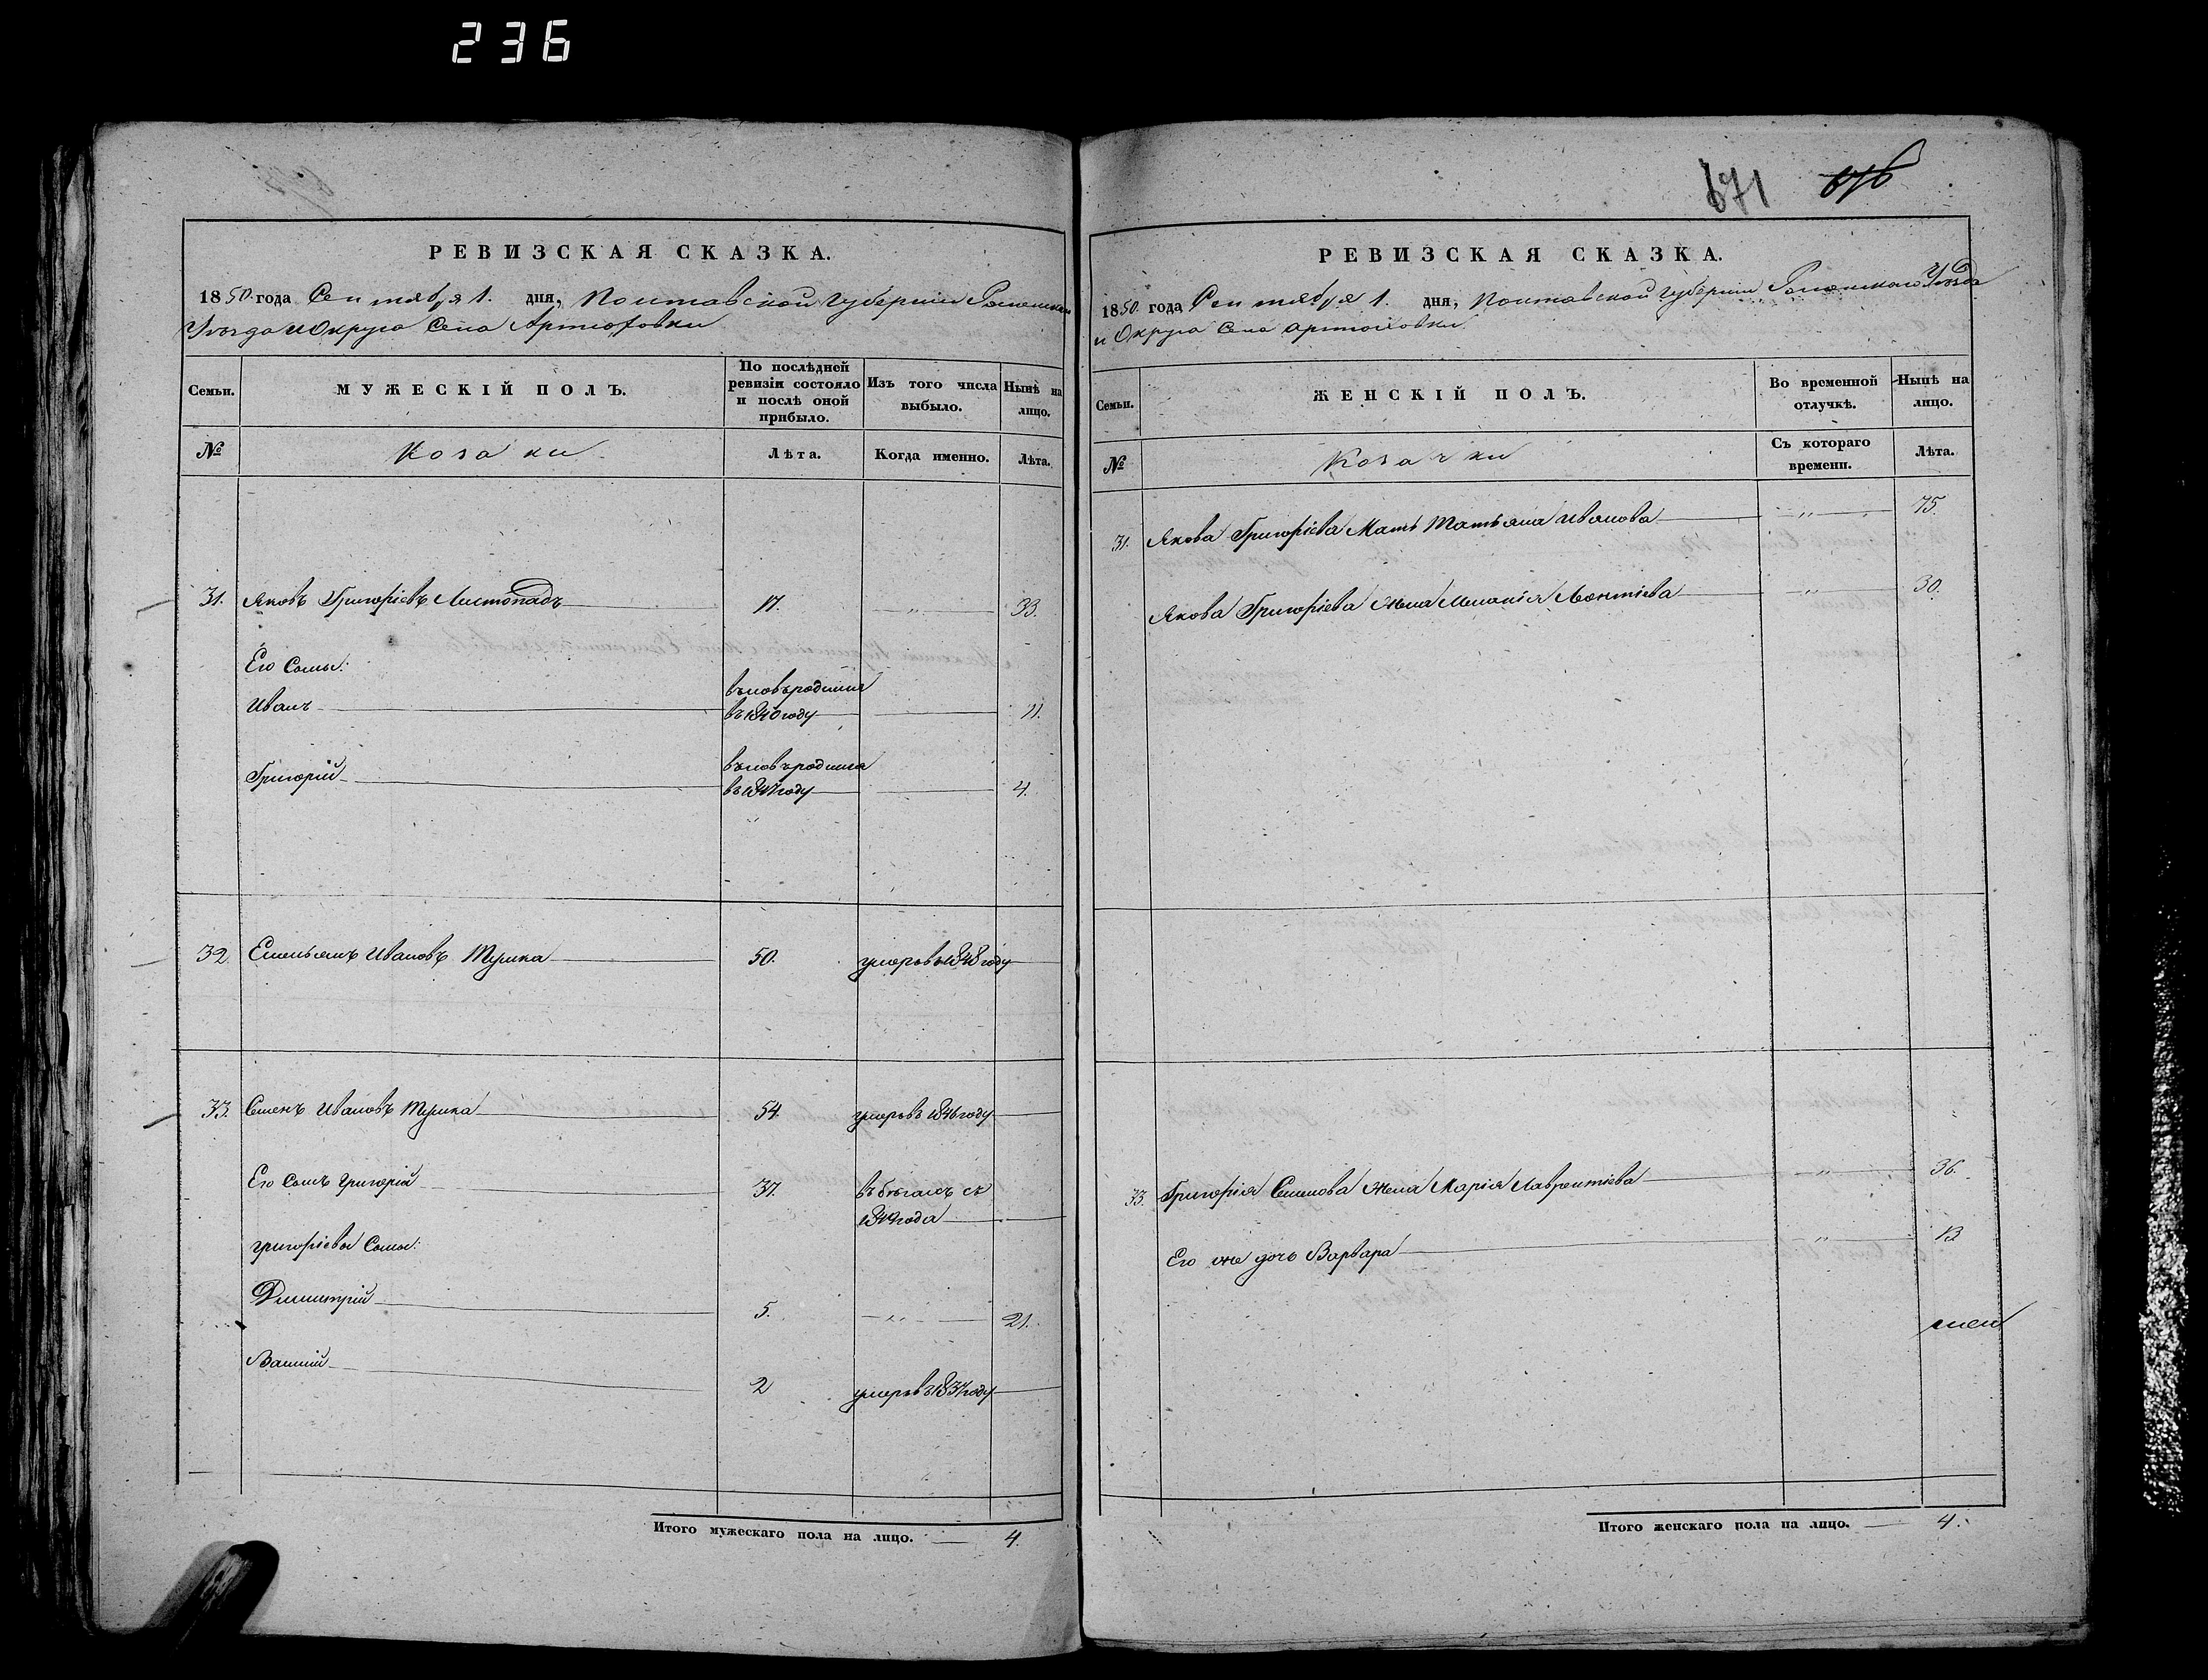 236
671 676
РЕВИЗСКАЯ СКАЗКА.
1850 года Сентября 1. дня, Полтавской Губернии Роменскаго
Уъезда и Округа Села Артюховки
Семьи. МУЖЕСКІЙ ПОЛЪ. По послѣдней ревизіи состояло и послѣ оной прибыло. Изъ того числа выбыло. Нынѣ на лицо.
№ Козаки Лѣта. Когда именно. Лѣта.
31. Яковъ Григоріевъ Листопадъ 17. 33.
Его Сыны:
Иванъ вновьродился въ 1840 году 11.
Григорій вновьродился въ 1847 году 4.
32. Емельянъ Ивановъ Тушка 50. умеръ въ 1848 году
33. Семенъ Ивановъ Тушка 54 умеръ въ 1846 году
Его Сынъ Григорій 37. въ бѣгахъ съ
1849 года
Григоріевы Сыны:
Димитрій 5. 21.
Василій 2 умеръ въ 1837 году
Итого мужескаго пола на лицо. 4.
РЕВИЗСКАЯ СКАЗКА.
1850. года Сентября 1. дня, Полтавской Губернии Роменскаго Уѣзда
и Округа Села Артюховки
Семьи. ЖЕНСКІЙ ПОЛЪ. Во временной отлучкѣ. Нынѣ на лицо.
№ Козачки Съ котораго времени. Лѣта.
31. Якова Григоріева Мать Татьяна Иванова " 75.
Якова Григоріева Жена Меланія Леонтіева " 30.
33. Григорія Семенова Жена Марія Лаврентіева " 36.
Его же дочь Варвара " 13
Итого женскаго пола на лицо. 4.